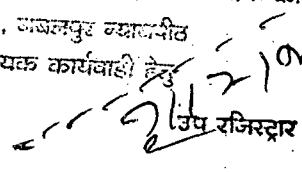 , जबलपुर न्यायपीठ
यक कार्यवाही हेतु
उप रजिस्ट्रार